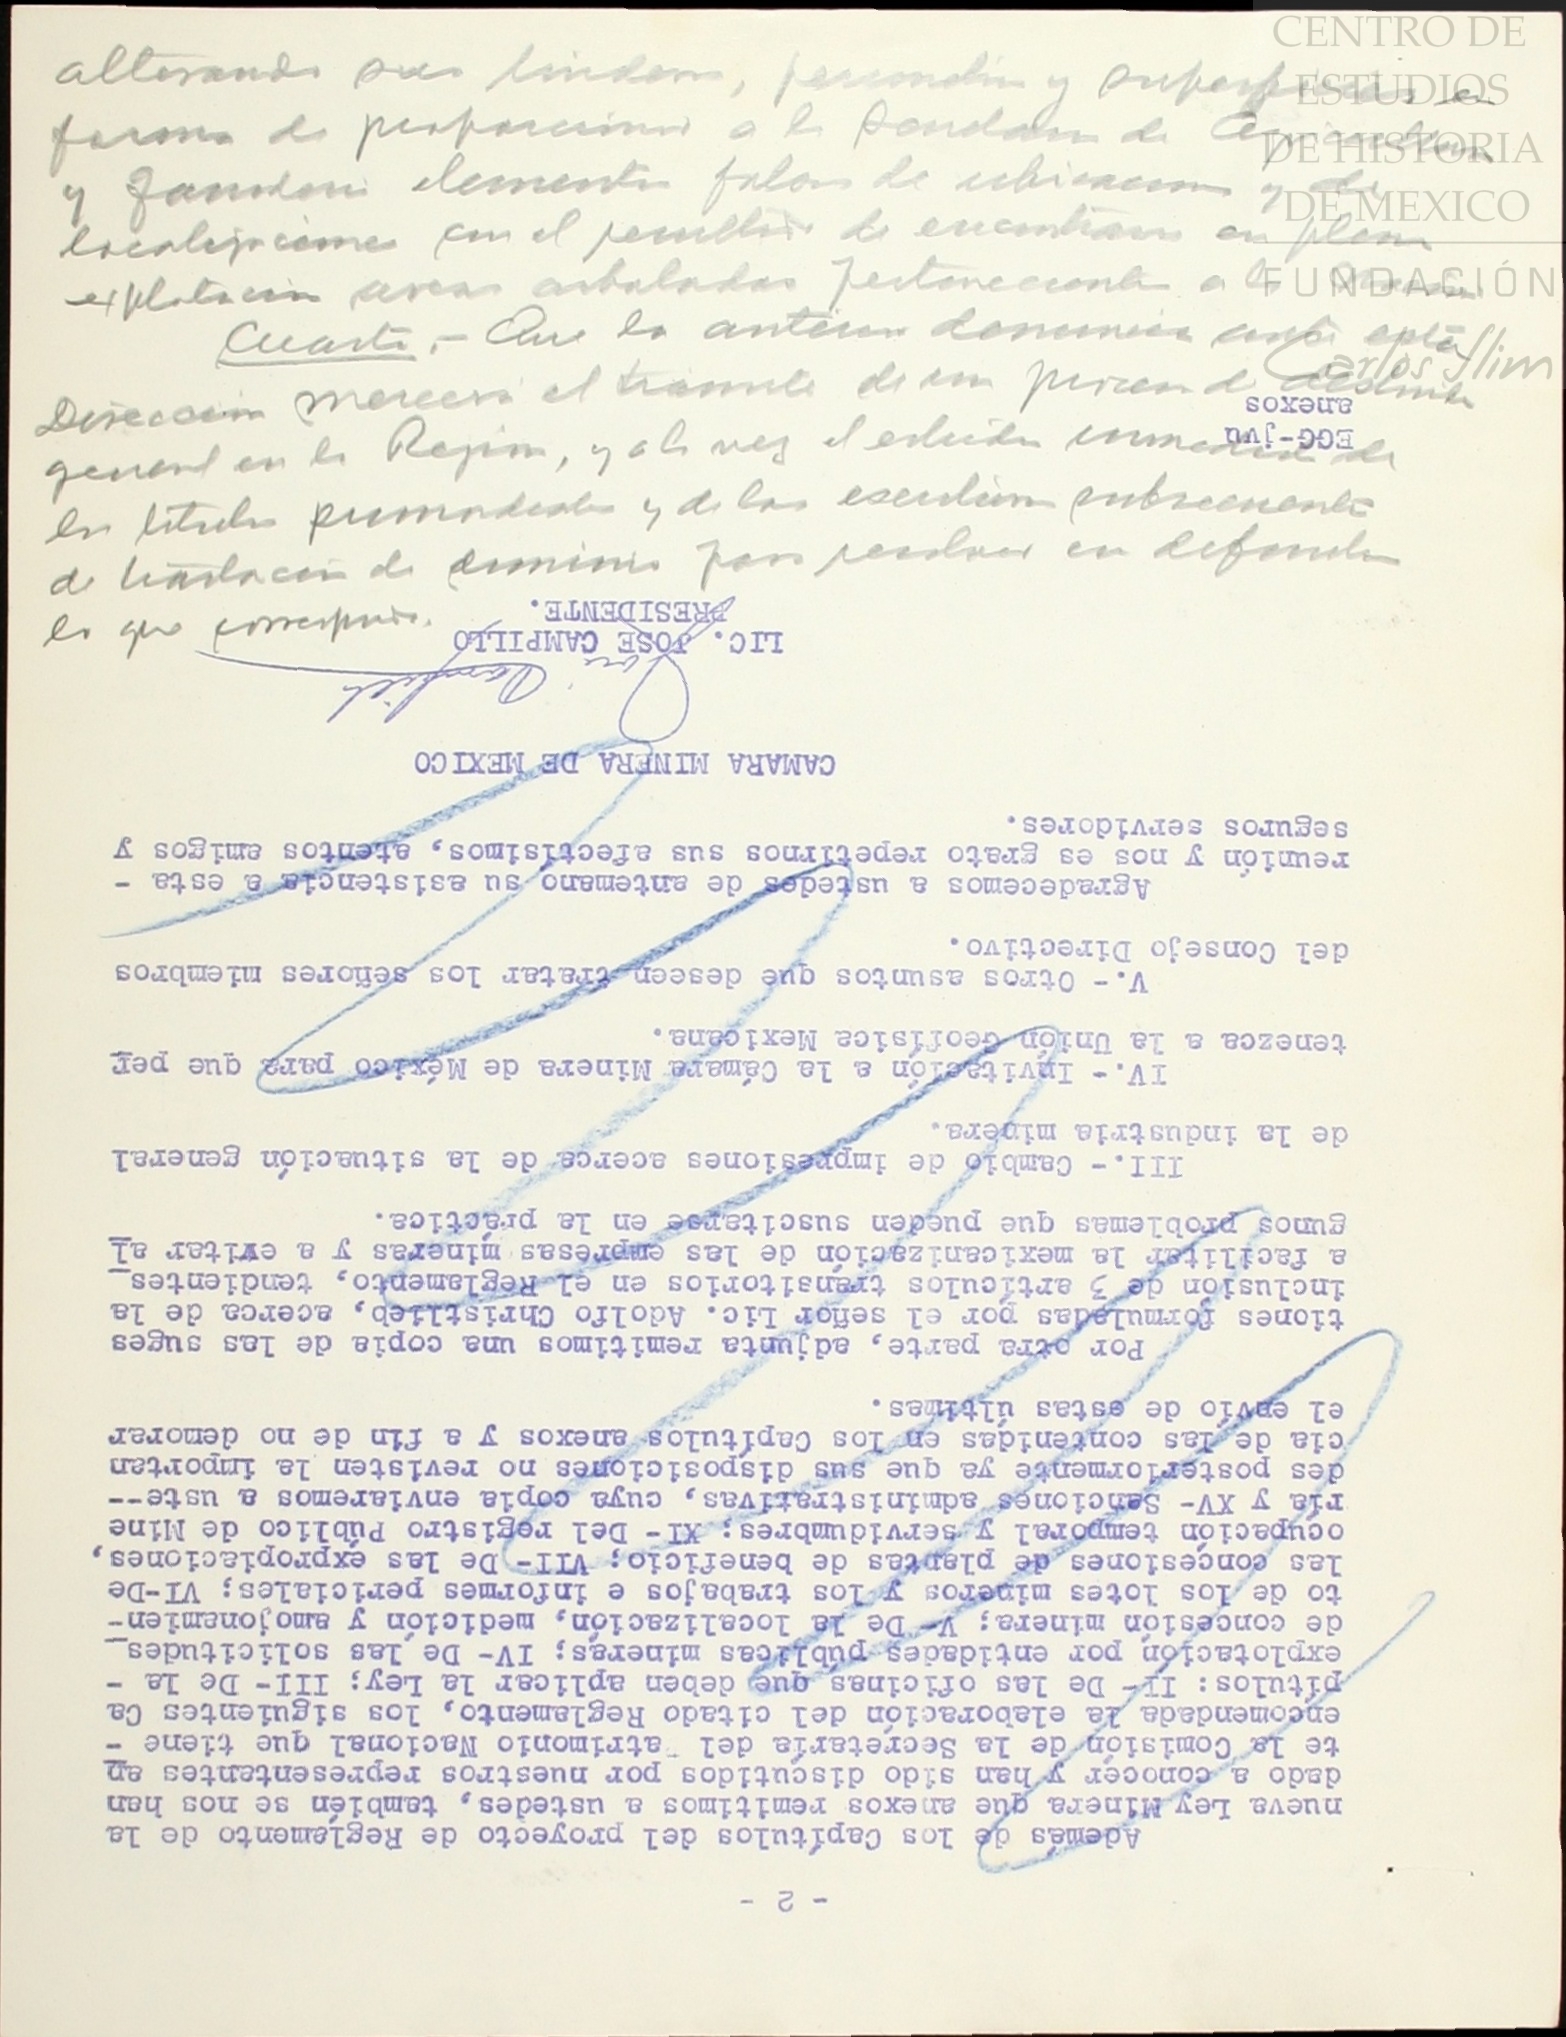 CENTRO DE
ESTUDIOS
DE HISTORIA
DE MEXICO
FUNDACIÓN
Carlos Slim
alterando sus linderos, y superficies en
forma de proporcionar a la de
y Ganaderia elementos falsos de ubicacion y de
localizaciones con el de encontrarse en plena
explotacion areas arboladas pertenecientes a la
Cuarto.- Que la anterior denuncia ante esta
Direccion merecera el tramite de un de deslinde
general en la Region, y a la vez el estudio inmediato de
los titulos primordiales y de las escrituras subsecuentes
de traslacion de dominio para resolver en definitiva
lo que corresponda.
- 2 -
Además de los Capítulos del proyecto de Reglamento de la
nueva Ley Minera que anexos remitimos a ustedes, también se nos han
dado a conocer y han sido discutidos por nuestros representantes an
te la Comisión de la Secretaría del Patrimonio Nacional que tiene -
encomendada la elaboración del citado Reglamento, los siguientes Ca
pítulos: II- De las oficinas que deben aplicar la Ley; III- De la -
explotación por entidades públicas mineras; IV- De las solicitudes
de concesión minera; V- De la localización, medición y amojonamien-
to de los lotes mineros y los trabajos e informes periciales; VI-De
las concesiones de plantas de beneficio; VII- De las expropiaciones,
ocupación temporal y servidumbres; XI- Del registro Público de Mine
ría y XV- Sanciones administrativas, cuya copia enviaremos a uste--
des posteriormente ya que sus disposiciones no revisten la importan
cia de las contenidas en los Capítulos anexos y a fin de no demorar
el envío de estas últimas.
Por otra parte, adjunta remitimos una copia de las suges
tiones formuladas por el señor Lic. Adolfo Christlieb, acerca de la
inclusión de 3 artículos transitorios en el Reglamento, tendientes
a facilitar la mexicanización de las empresas mineras y a evitar al
gunos problemas que pueden suscitarse en la práctica.
III.- Cambio de impresiones acerca de la situación general
de la industria minera.
IV.- Invitación a la Cámara Minera de México para que per
tenezca a la Unión Geofísica Mexicana.
V.- Otros asuntos que deseen tratar los señores miembros
del Consejo Directivo.
Agradecemos a ustedes de antemano su asistencia a esta -
reunión y nos es grato repetirnos sus afectísimos, atentos amigos y
seguros servidores.
CAMARA MINERA DE MEXICO
José Campillo
LIC. JOSE CAMPILLO
PRESIDENTE.
EGG-jvu
anexos